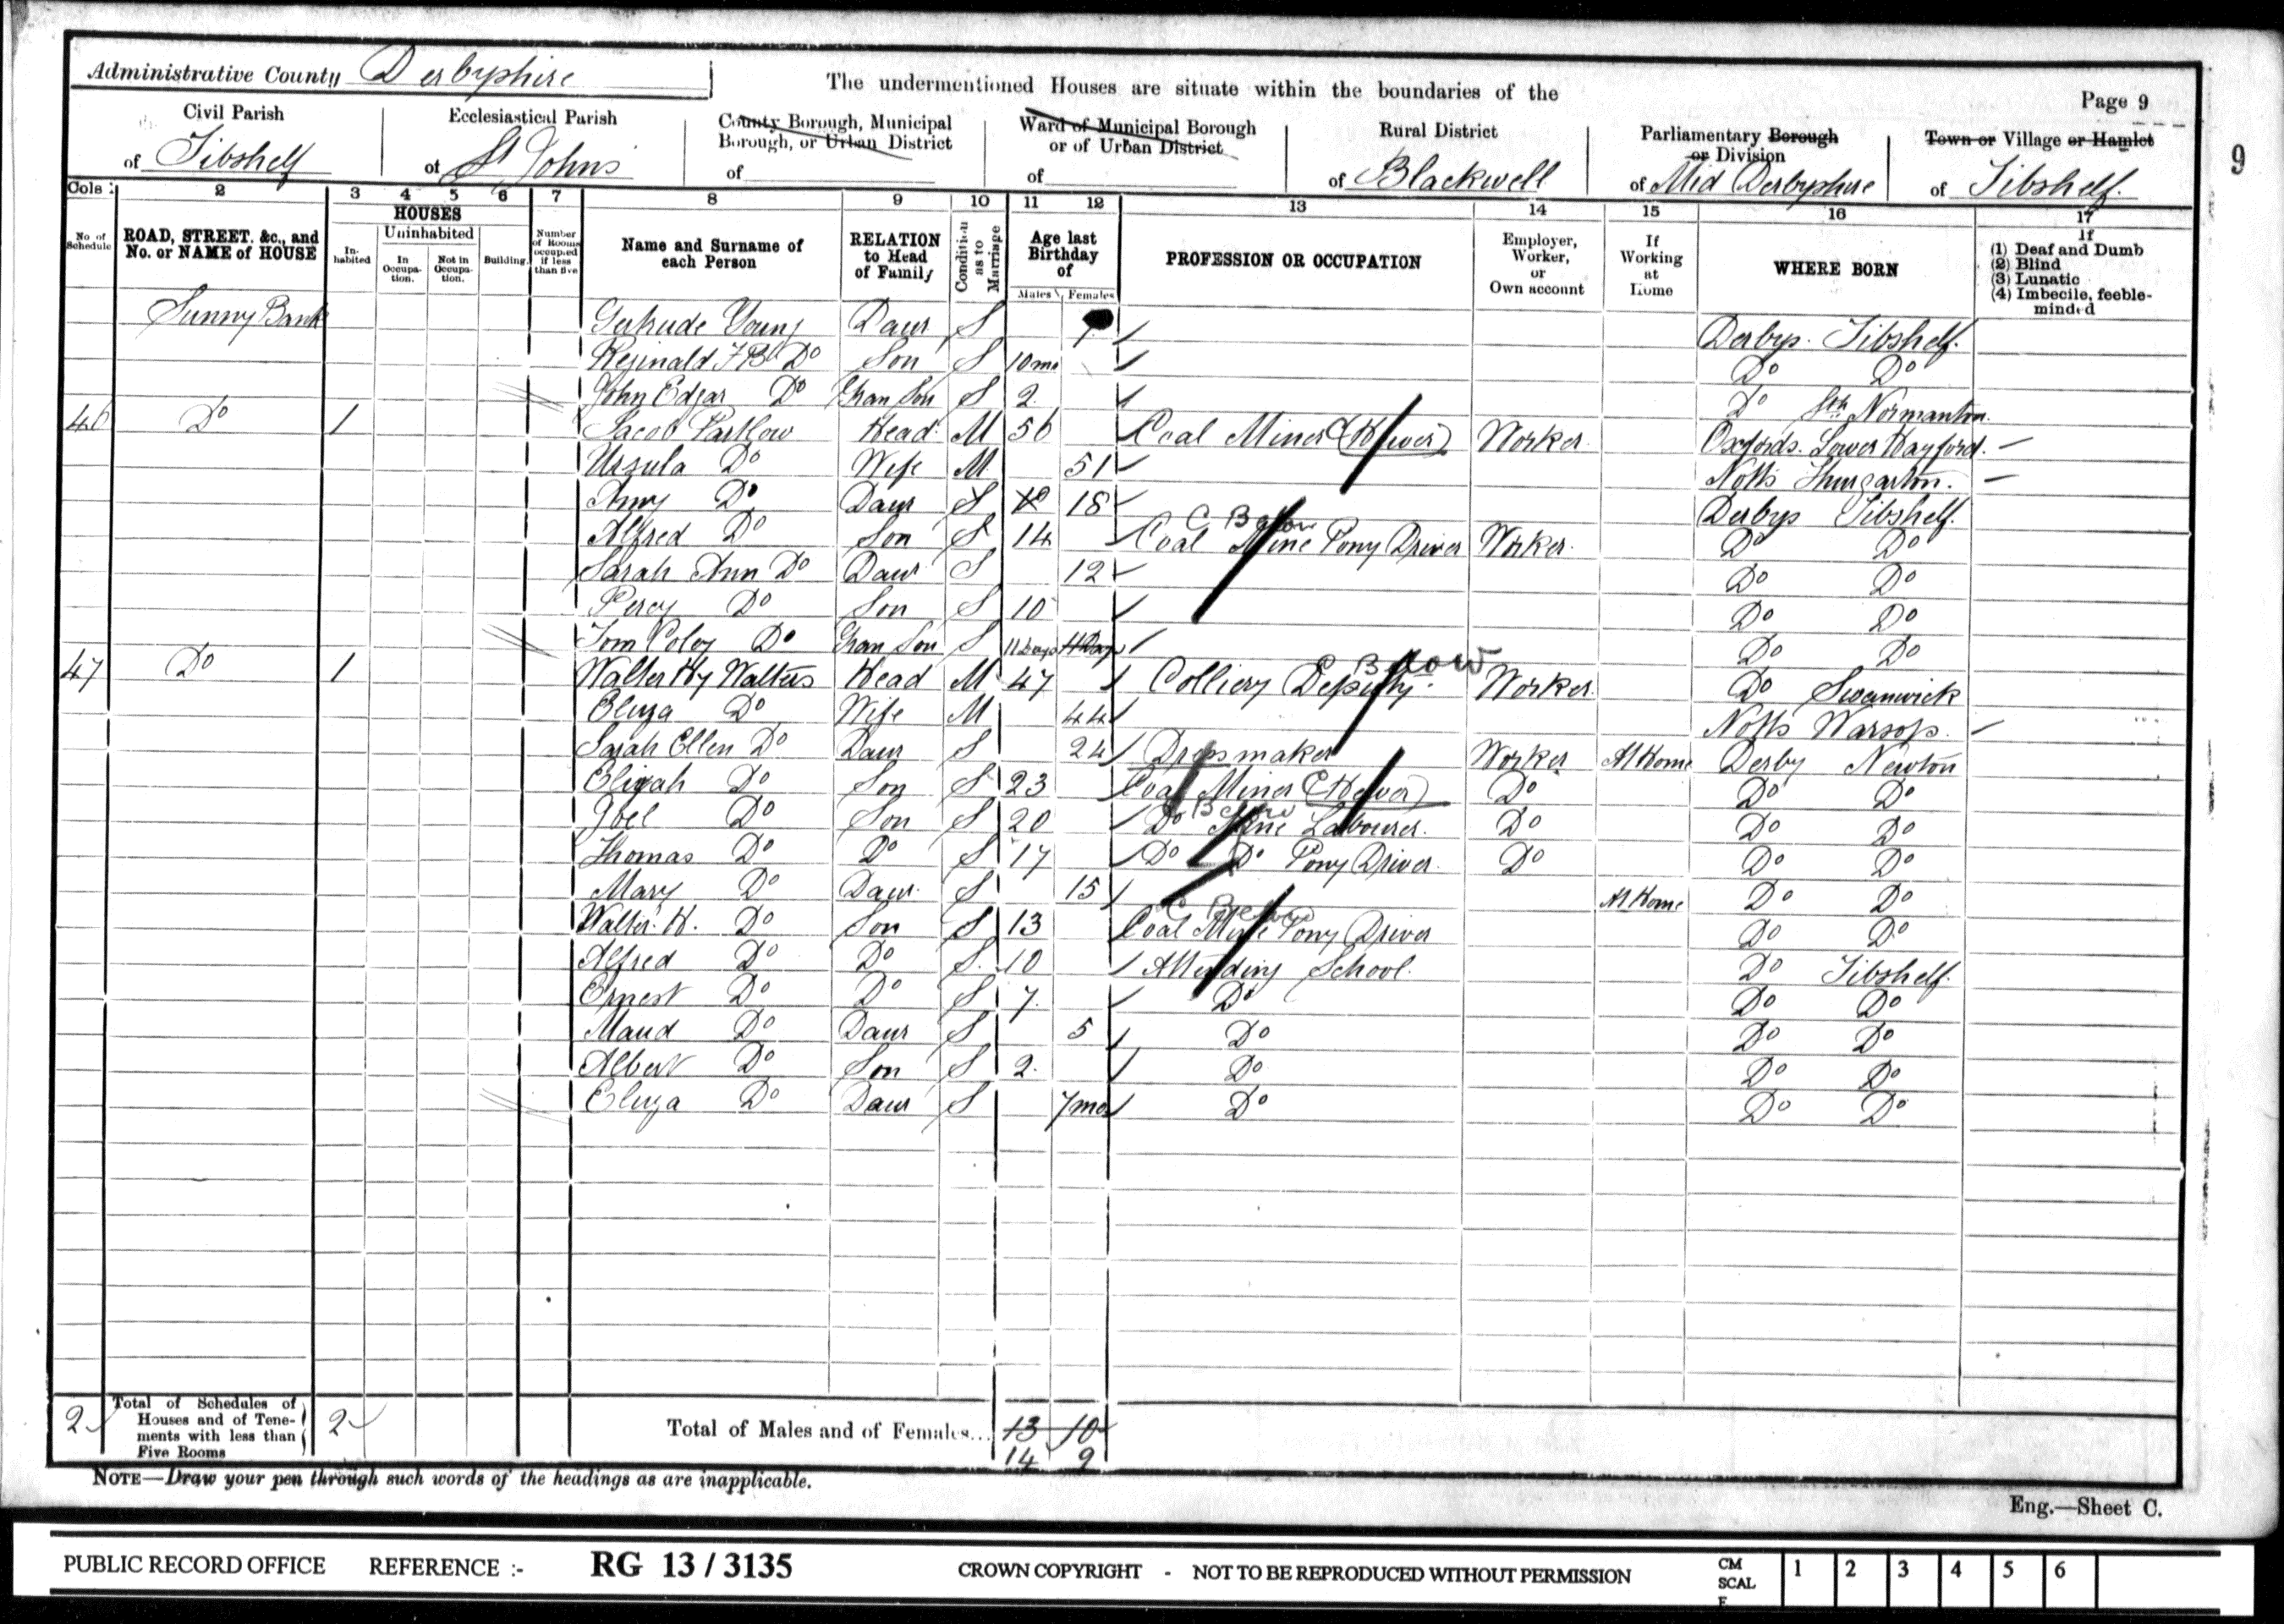 Administrative County Derbyshire
The undermentioned Houses are situate within the boundaries of the
Page 9
9
Civil Parish of Tibshelf
Ecclesiastical Parish of St Johns
County Borough, Municipal Borough, or Urban District of
Ward of Municipal Borough or of Urban District of
Rural District of Blackwell
Parliamentary Borough or Division of Mid Derbyshire
Town or Village or Hamlet of Tibshelf.
Cols 1 2 3 4 5 6 7 8 9 10 11 12 13 14 15 16 17
No. of Schedule
ROAD, STREET, &c., and No. or NAME of HOUSE
HOUSES
Inhabited
Uninhabited
In Occupation.
Not in Occupation.
Building.
Number of Rooms occupied if less than five
Name and Surname of each Person
RELATION to Head of Family
Condition as to Marriage
Age last Birthday of
Males Females
PROFESSION OR OCCUPATION
Employer, Worker, or Own account
If Working at Home
WHERE BORN
If
(1) Deaf and Dumb
(2) Blind
(3) Lunatic
(4) Imbecile, feeble-minded
Sunny Bank Gertrude Young Daur S Derbys. Tibshelf.
Reginald F B Do Son S 10 mo Do Do
John Edgar Do Gran Son S 2 Do Sth Normanton.
46 Do 1 Jacob Partlow Head M 56 Coal Miner (Hewer) Worker Oxfords. Lower Hayford.
Ursula Do Wife M 51 Notts Thurgarton.
Amy Do Daur S 18 Derbys Tibshelf.
C Below
Alfred Do Son S 14 Coal Mine Pony Driver Worker. Do Do
Sarah Ann Do Daur S 12 Do Do
Percy Do Son S 10 Do Do
Tom Coley Do Gran Son S 11 Days 11 Days Do Do
Below
47 Do 1 Walter Hy Walters Head M 47 Colliery Deputy. Worker. Do Swanwick
Eliza Do Wife M 44 Notts Warsop.
Sarah Ellen Do Daur S 24 Dressmaker Worker At Home Derby Newton
Elijah Do Son S 23 Coal Miner (Hewer) Do Do Do
Below
Joel Do Son S 20 Do Mine Labourer. Do Do Do
Thomas Do Do S 17 Do Do Pony Driver. Do Do Do
Mary Do Daur. S 15 At Home Do Do
C Below
Walter. H. Do Son S 13 Coal Mine Pony Driver Do Do
Alfred Do Do S. 10 Attending School. Do Tibshelf.
Ernest Do Do S 7. Do Do Do
Maud Do Daur S 5 Do Do Do
Albert Do Son S 2. Do Do Do
Eliza Do Daur S 7 mo Do Do Do
2 Total of Schedules of Houses and of Tenements with less than Five Rooms 2 Total of Males and of Females... 13 10
14 9
NOTE—Draw your pen through such words of the headings as are inapplicable.
Eng.—Sheet C.
PUBLIC RECORD OFFICE REFERENCE :- RG 13 / 3135 CROWN COPYRIGHT - NOT TO BE REPRODUCED WITHOUT PERMISSION CM SCALE 1 2 3 4 5 6